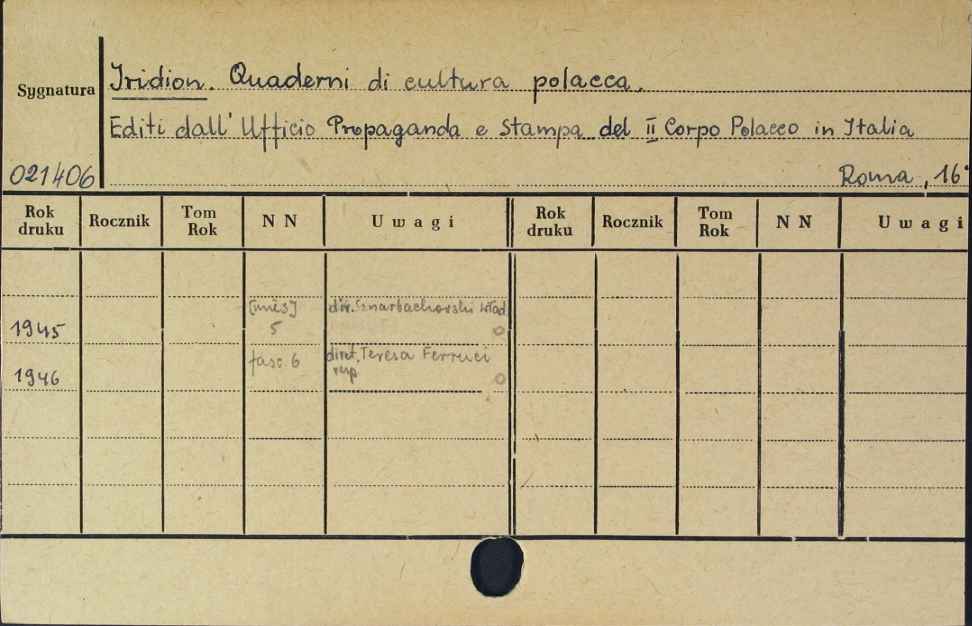 Sygnatura
Iridion. Quaderni di cultura polacca.
Editi dall' Ufficio Propaganda e Stampa del II Corpo Polacco in Italia
021406 Roma, 16°
Rok druku Rocznik Tom Rok N N Uwagi Rok druku Rocznik Tom Rok N N Uwagi
[mies] dir. Sznarbachowski Włod.
1945 5
fasc. 6 diret. Teresa Ferruci
1946 resp